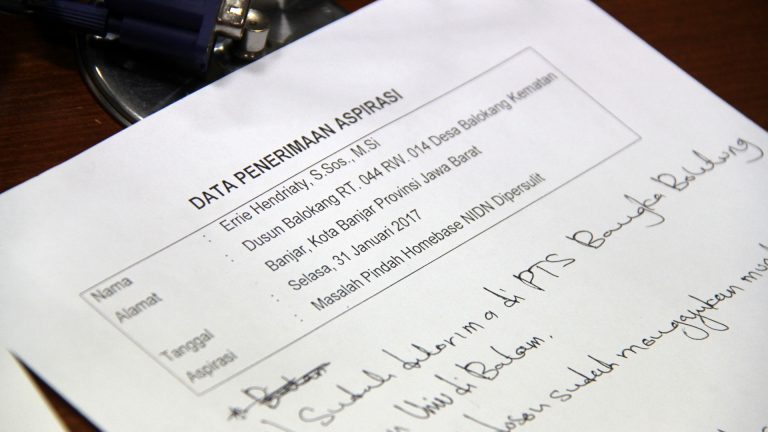 DATA PENERIMAAN ASPIRASI
Nama : Errie Hendriaty, S.Sos., M.Si
Alamat : Dusun Balokang RT. 044 RW. 014 Desa Balokang Kematan
Banjar, Kota Banjar Provinsi Jawa Barat
Tanggal : Selasa, 31 Januari 2017
Aspirasi : Masalah Pindah Homebase NIDN Dipersulit
Sudah diterima di PTS Bangka Belitung
Univ di Batam.
sudah mengajukan